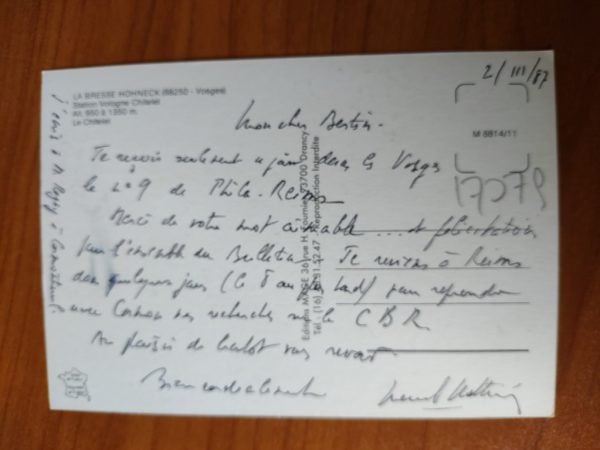 2/III/87
LA BRESSE HOHNECK (88250 - Vosges)
Station Vologne Chitelet
Alt. 950 à 1350 m.
Le Chitelet
M 8814/11
17079
Mon cher Bertin.
Je reçois seulement ce jour dans les Vosges
le n° 9 de Phila-Reims
Merci de votre mot aimable ... et félicitations
pour l'ensemble du Bulletin. Je reviens à Reims
dans quelques jours (le 8 au plus tard) pour reprendre
avec nos recherches sur le CBR
Au plaisir de bientôt vous revoir
Bien cordialement
J'écris à M. à
Editions MAGE 36, rue H. Fournier 93700 Drancy
Tél. : (16) Reproduction Interdite